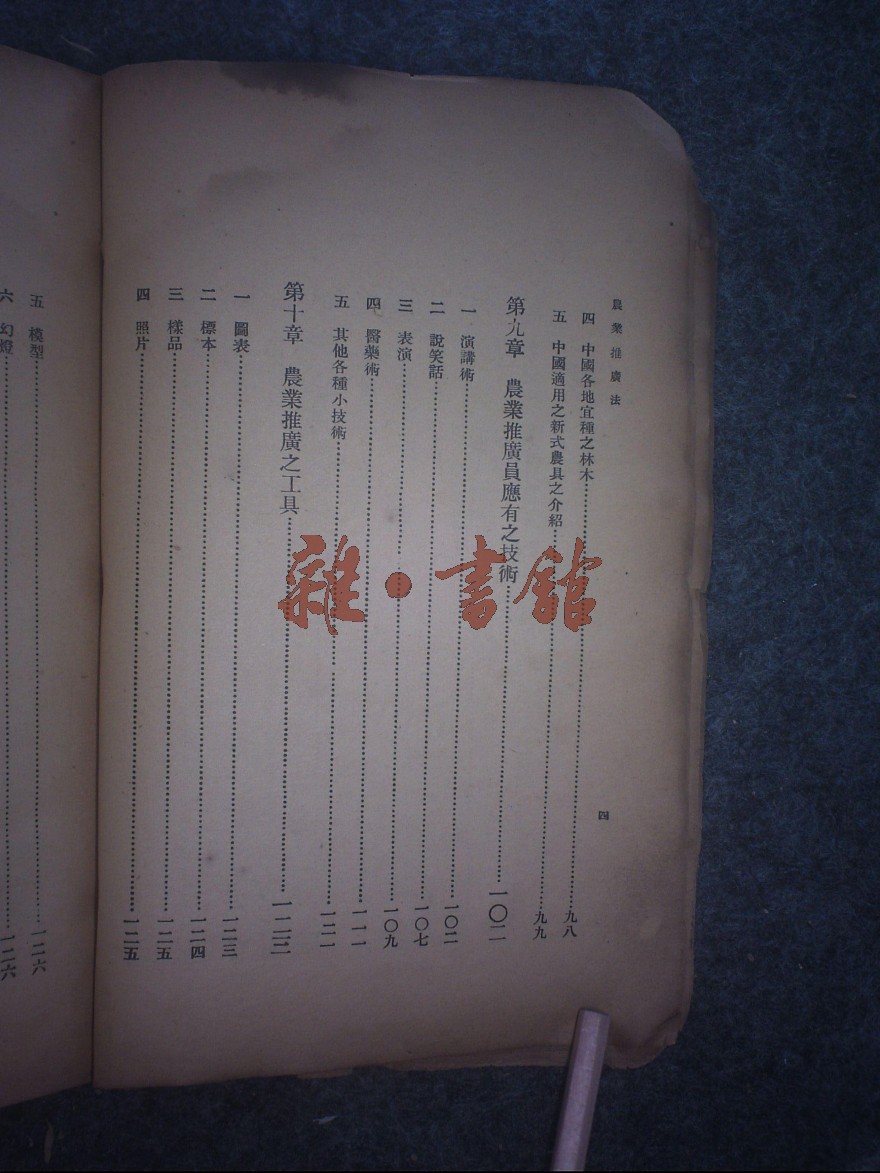 農業推廣法
四
四 中國各地宜種之林木……九八
五 中國適用之新式農具之介紹……九九
第九章 農業推廣員應有之技術……一〇二
一 演講術……一〇二
二 說笑話……一〇七
三 表演……一〇九
四 醫藥術……一一一
五 其他各種小技術……一二一
第十章 農業推廣之工具……一二三
一 圖表……一二三
二 標本……一二四
三 樣品……一二五
四 照片……一二五
五 模型……一二六
六 幻燈……一二六
雜·書館